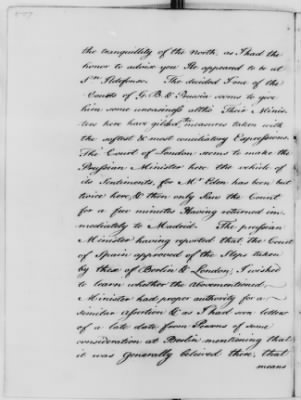 the tranquillity of the North, as I had the
honor to advise you He appeared to be at
Sn. Ildefonso. The decided Tone of the
Courts of G.B. & Prussia seems to give
him some uneasiness altho' Their Minis-
ters here have gilded the measures taken with
the softest & most conciliatory Expressions.
The Court of London seems to make the
Prussian Minister here the vehicle of
its Sentiments, for Mr. Eden has been but
twice here, & then only saw the Count
for a few minutes Having returned im-
mediately to Madrid. The prussian
Minister having reported that the Court
of Spain approved of the Steps taken
by those of Berlin & London; I wished
to learn whether the abovementioned
Minister had proper authority for a
similar assertion & as I had seen letters
of a late date from Persons of some
consideration at Berlin mentioning that
it was generally believed there, that
means